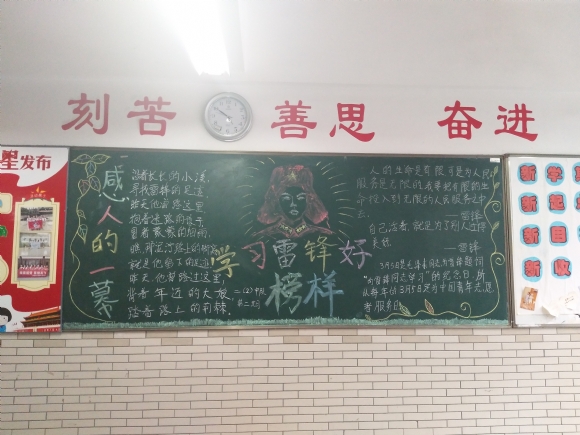 刻苦 善思 奋进
星发布
感人的一幕
沿着长长的小溪,
寻找雷锋的足迹
昨天他曾路过这里
抱着迷路的孩子
冒着蒙蒙的细雨,
瞧,那泥泞路上的脚窝
就是他留下的足迹
昨天,他曾路过这里,
背着年迈的大娘,
踏着路上的荆棘,
学习雷锋好
榜样
二(2)中队
第二期
人的生命是有限,可是为人民
服务是无限的,我要把有限的生
命投入到无限的人民服务之中
去。
——雷锋
自己活着,就是为了别人过得
美好
——雷锋
3月5日是毛泽东同志为雷锋题词
"向雷锋同志学习"的纪念日,所
从每年的3月5日定为中国青年志愿
者服务日
新学
新起
新目
新收